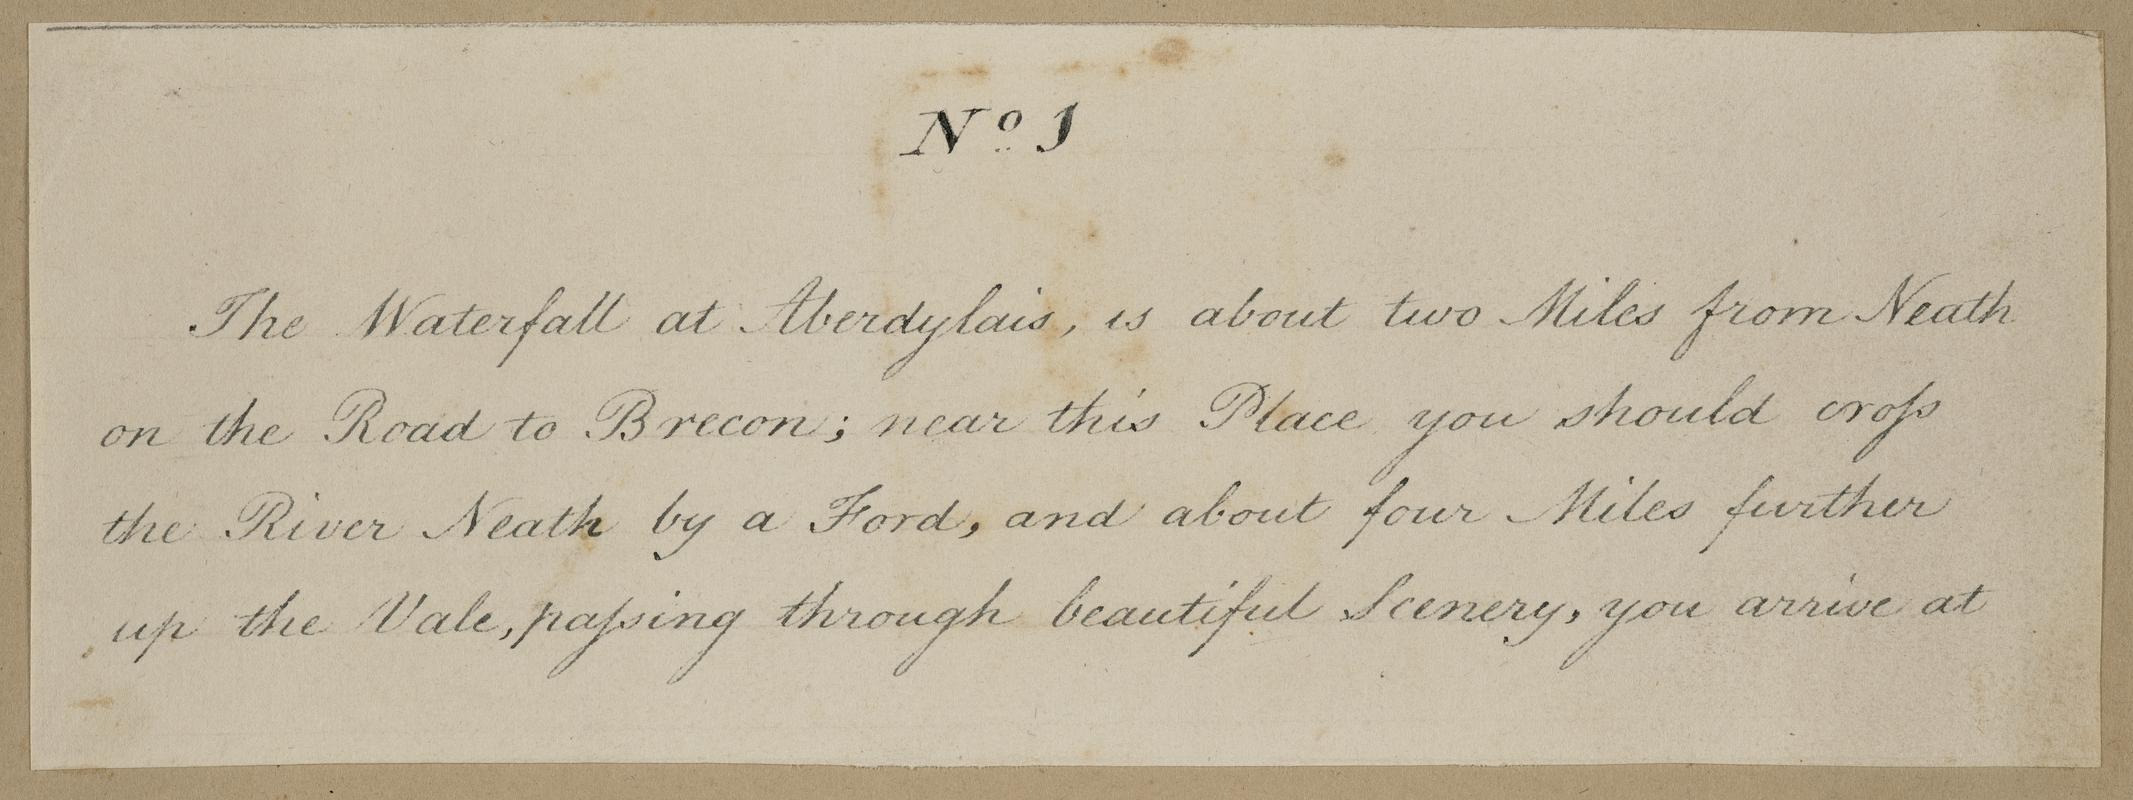 Nº 1
The Waterfall at Aberdylais, is about two Miles from Neath
on the Road to Brecon; near this Place you should croſs
the River Neath by a Ford, and about four Miles further
up the Vale, paſsing through beautiful Scenery, you arrive at